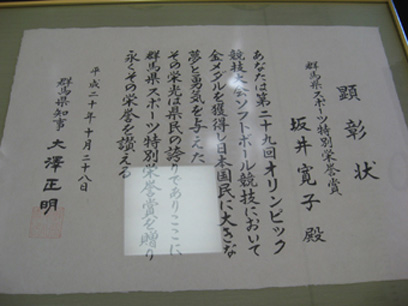 顕彰状
群馬県スポーツ特別栄誉賞
坂井寛子殿
あなたは第二十九回オリンピック
競技大会ソフトボール競技において
金メダルを獲得し日本国民に大きな
夢と勇気を与えた
その栄光は県民の誇りでありここに
群馬県スポーツ特別栄誉賞を贈り
永くその栄誉を讃える
平成二十年十月二十八日
群馬県知事 大澤正明